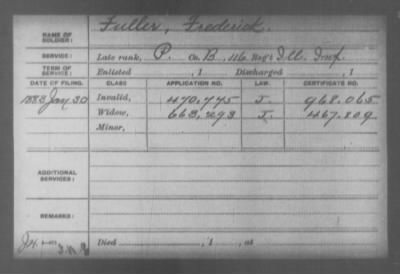 NAME OF SOLDIER: Fuller, Frederick.
SERVICE: Late rank, P. Co. B, 116 Reg't Ill. Inf.
TERM OF SERVICE: Enlisted , 1 Discharged , 1
DATE OF FILING. CLASS. APPLICATION NO. LAW. CERTIFICATE NO.
1883 Jany 30 Invalid, 470.775 968.065
Widow, 663,293 467.809
Minor,
ADDITIONAL SERVICES:
REMARKS:
Died , 1 , at